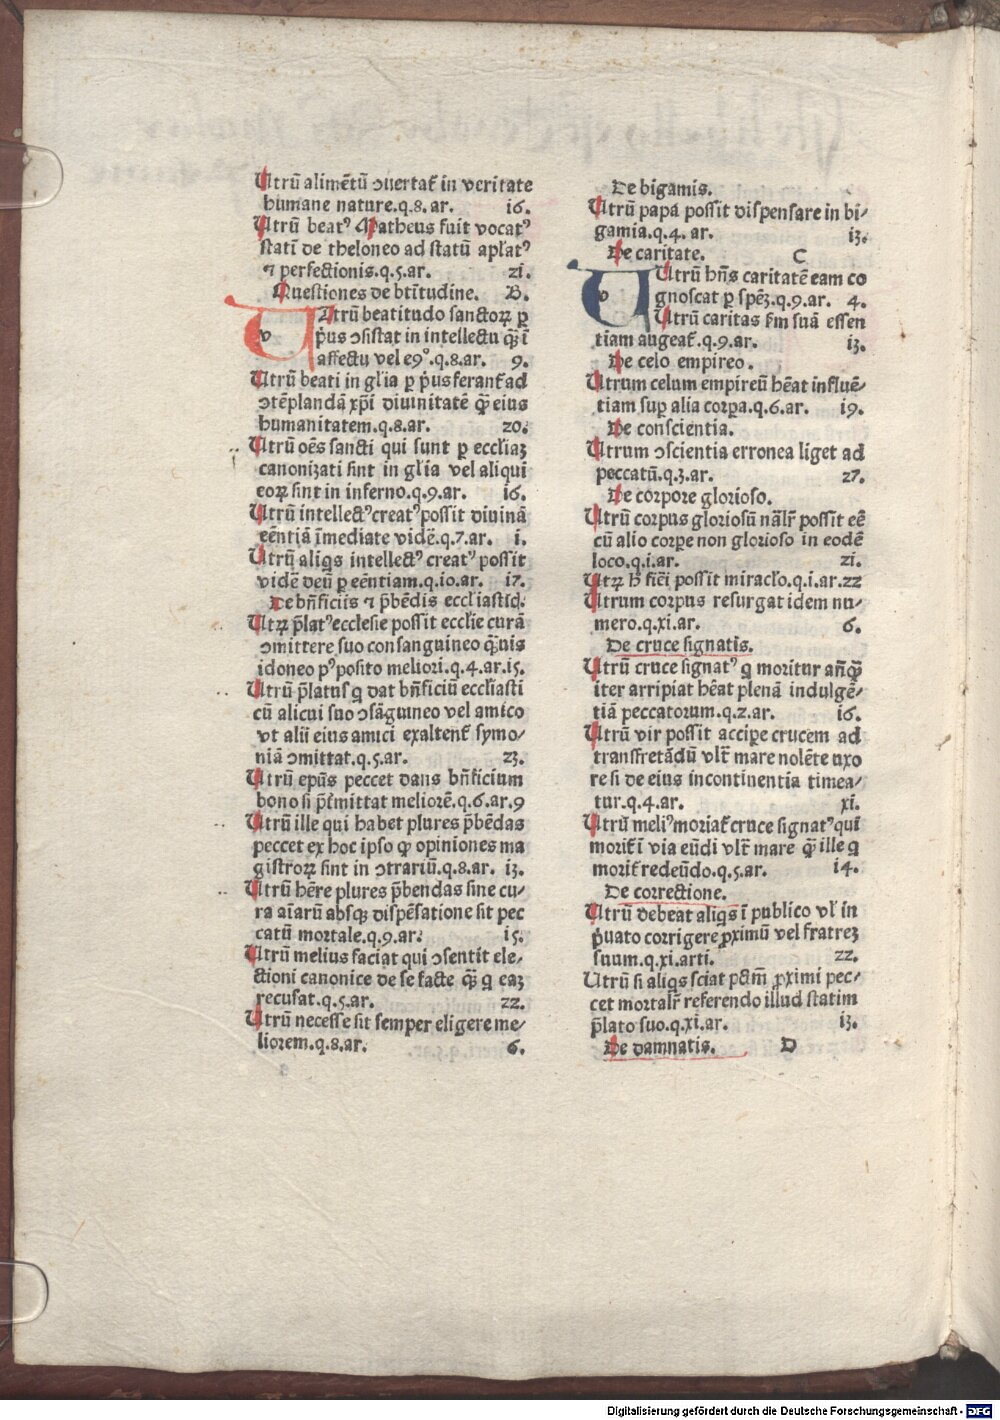 Utrū alimētū ꝯuertat̄ in veritate
humane nature.q.8.ar. 16.
Utrū beatꝰ Matheus fuit vocatꝰ
statī de theloneo ad statū apl̄atꝰ
⁊ perfectionis.q.5.ar. 21.
Questiones de btītudine. B.
v Utrū beatitudo sanctoꝝ ꝑ
p̄us ꝯsistat in intellectu qͣ̄ ī
affectu vel e9ᵒ.q.8.ar. 9.
Utrū beati in gl̄ia ꝑ p̄us ferant̄ ad
ꝯtēplandā xp̄i diuinitatē qͣ̄ eius
humanitatem.q.8.ar. 20.
Utrū oēs sancti qui sunt ꝑ eccl̄iaꝫ
canonizati sint in gl̄ia vel aliqui
eoꝝ sint in inferno.q.9.ar. 16.
Utrū intellectꝰ creatꝰ possit diuinā
eēntiā īmediate vidē.q.7.ar. 1.
Utrū aliqͥs intellectꝰ creatꝰ possit
vidē deū ꝑ eēntiam.q.10.ar. 17.
De bn̄ficiis ⁊ p̄bēdis eccl̄iasticꝭ.
Utꝝ p̄latꝰ ecclesie possit eccl̄ie curā
ꝯmittere suo consanguineo qͣ̄uis
idoneo pꝰposito meliori.q.4.ar.15.
Utrū p̄latus qͥ dat bn̄ficiū eccl̄iasti
cū alicui suo ꝯsāguineo vel amico
vt alii eius amici exaltent̄ symo⸗
niā ꝯmittat.q.5.ar. 23.
Utrū ep̄us peccet dans bn̄ficium
bono si p̄t̄mittat meliorē.q.6.ar.9
Utrū ille qui habet plures p̄bēdas
peccet ex hoc ipso ꝙ opiniones ma
gistroꝝ sint in ꝯtrariū.q.8.ar. 13.
Utrū hēre plures p̄bendas sine cu⸗
ra aīarū absqꝫ dispēsatione sit pec
catū mortale.q.9.ar. 15.
Utrū melius faciat qui ꝯsentit ele⸗
ctioni canonice de se facte qͣ̄ qͥ eaꝫ
recusat.q.5.ar. 22.
Utrū necesse sit semper eligere me⸗
liorem.q.8.ar. 6.
De bigamis.
Utrū papa possit dispensare in bi⸗
gamia.q.4.ar. 13.
De caritate. C
v Utrū hn̄s caritatē eam co
gnoscat ꝑ spēꝫ.q.9.ar. 4.
Utrū caritas ẜm suā essen
tiam augeat̄.q.9.ar. 13.
De celo empireo.
Utrum celum empireū hēat influē⸗
tiam suꝑ alia corꝑa.q.6.ar. 19.
De conscientia.
Utrum ꝯscientia erronea liget ad
peccatū.q.3.ar. 27.
De corpore glorioso.
Utrū corpus gloriosū nāl̄r possit eē
cū alio corꝑe non glorioso in eodē
loco.q.1.ar. 21.
Utꝝ h̄ fiēi possit miracl̄o.q.1.ar.22
Utrum corpus resurgat idem nu⸗
mero.q.xi.ar. 6.
De cruce signatis.
Utrū cruce signatꝰ qͥ moritur añqͣ̄
iter arripiat hēat plenā indulgē⸗
tiā peccatorum.q.2.ar. 16.
Utrū vir possit acciꝑe crucem ad
transfretādū vlt̄ mare nolēte uxo
re si de eius incontinentia timea⸗
tur.q.4.ar. xi.
Utrū meliꝰ moriat̄ cruce signatꝰ qui
morit̄ ī via eūdi vlt̄ mare qͣ̄ ille qͥ
morit̄ redeūdo.q.5.ar. 14.
De correctione.
Utrū debeat aliqͥs ī publico vl̄ in
p̄uato corrigere ꝓximū vel fratreꝫ
suum.q.xi.arti. 22.
Utrū si aliqͥs sciat pctm̄ ꝓximi pec⸗
cet mortal̄r referendo illud statim
p̄lato suo.q.xi.ar. 13.
De damnatis. D
Digitalisierung gefördert durch die Deutsche Forschungsgemeinschaft - DFG